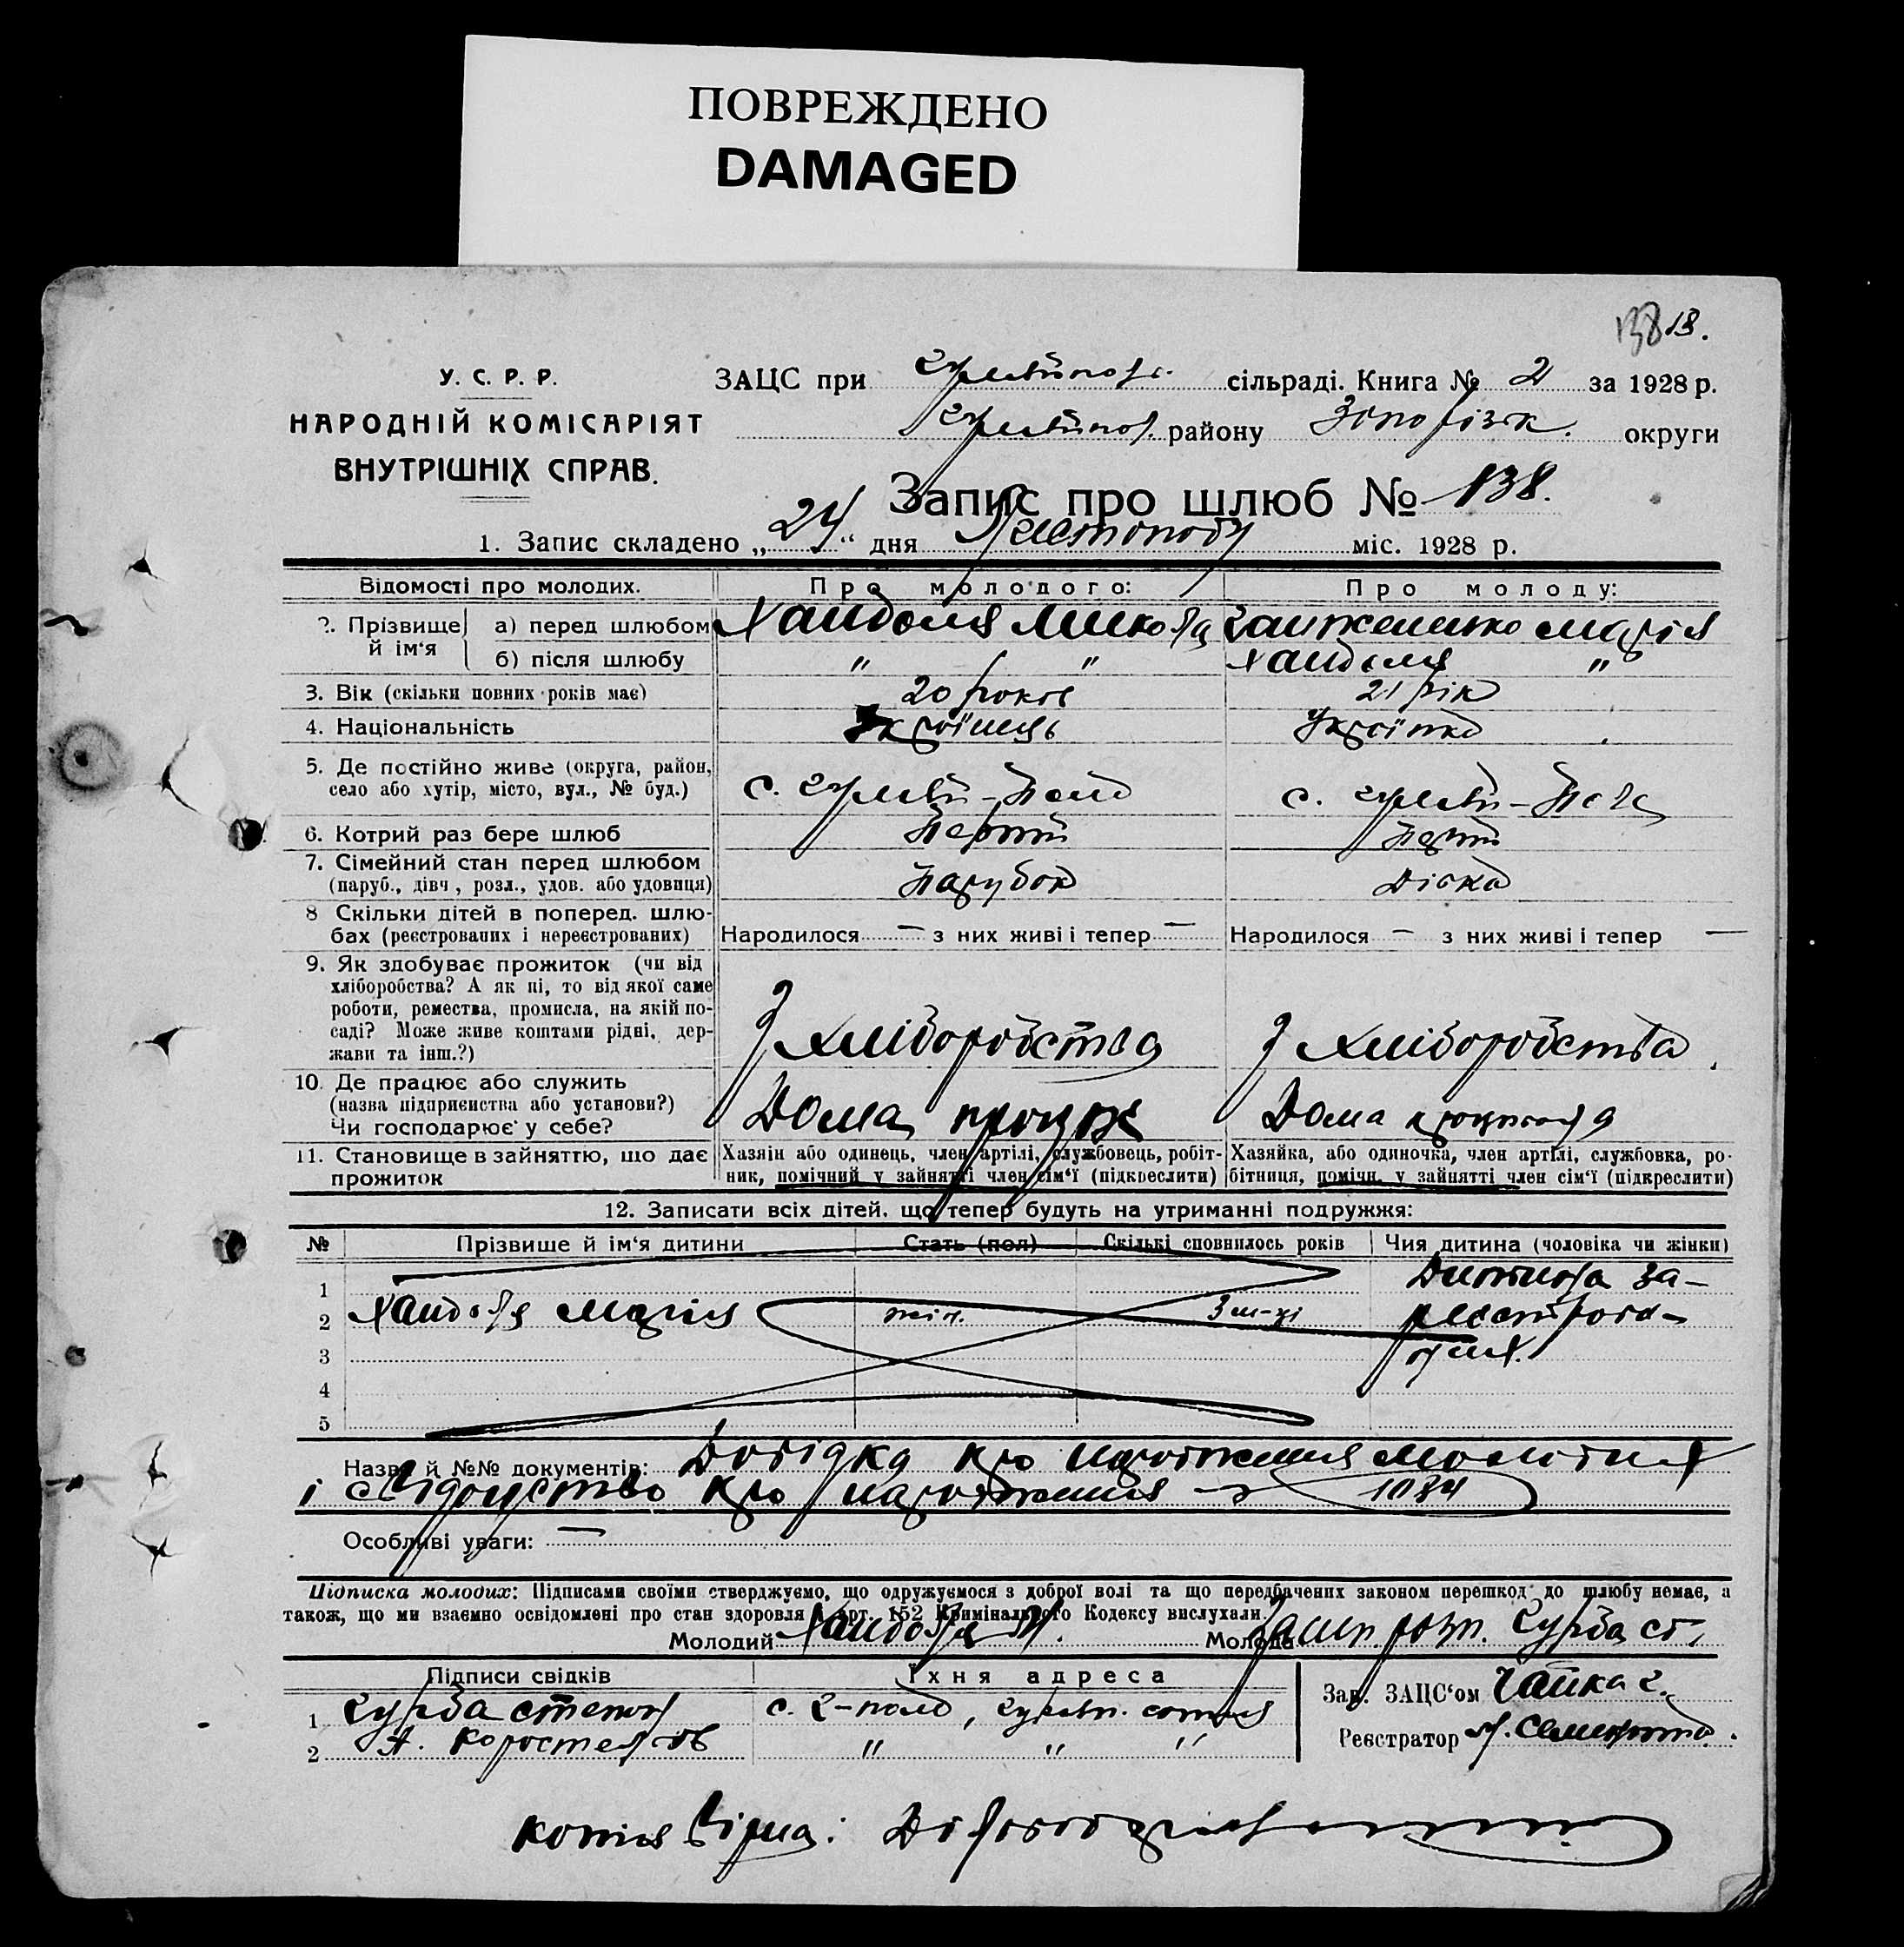 ПОВРЕЖДЕНО
DAMAGED
138 13.
У. С. Р. Р.
НАРОДНІЙ КОМІСАРІЯТ
ВНУТРІШНІХ СПРАВ.
ЗАЦС при сільраді. Книга № 2 за 1928 р.
району округи
Запис про шлюб № 138.
1. Запис складено „24“ дня Листопаду міс. 1928 р.
Відомості про молодих. Про молодого: Про молоду:
2. Прізвище й ім‘я а) перед шлюбом Микола Марія
б) після шлюбу " " "
3. Вік (скільки повних років має) 20 років 21 рік
4. Національність Українець Українка
5. Де постійно живе (округа, район, село або хутір, місто, вул., № буд.) с. Гуляй-Поле с. Гуляй-Поле
6. Котрий раз бере шлюб Перший Перший
7. Сімейний стан перед шлюбом (паруб., дівч., розл., удов. або удовиця) Парубок Дівка
8 Скільки дітей в поперед. шлюбах (реєстрованих і нереєстрованих) Народилося — з них живі і тепер — Народилося — з них живі і тепер —
9. Як здобуває прожиток (чи від хліборобства? А як ні, то від якої саме роботи, ремества, промисла, на якій посаді? Може живе коштами рідні, держави та інш.?) З хліборобства З хліборобства
10. Де працює або служить (назва підприємства або установи?) Чи господарює у себе? Дома працює Дома
11. Становище в зайняттю, що дає прожиток Хазяін або одинець, член артілі, службовець, робітник, помічний у зайнятті член сім‘ї (підкреслити) Хазяйка, або одиночка, член артілі, службовка, робітниця, помічн. у зайнятті член сім‘ї (підкреслити)
12. Записати всіх дітей, що тепер будуть на утриманні подружжя:
№ Прізвище й ім‘я дитини Стать (пол) Скількі сповнилось років Чия дитина (чоловіка чи жінки)
1 Дитина за-
2 Марія жін. 3 м-ці реєстрова-
3
4
5
Назва й №№ документів: Довідка про народження
і свідоцтво про народження 1084
Особливі уваги: —
Підписка молодих: Підписами своїми стверджуємо, що одружуємося з доброї волі та що передбачених законом перешкод до шлюбу немає, а
також, що ми взаємно освідомлені про стан здоровля й арт. 152 Кримінального Кодексу вислухали.
Молодий Молода
Підписи свідків Їхня адреса Зав. ЗАЦС‘ом Чайка Г.
1 Степан с. Г-поле,
2 А. Коростельов " " " Реєстратор
Копия вірна: